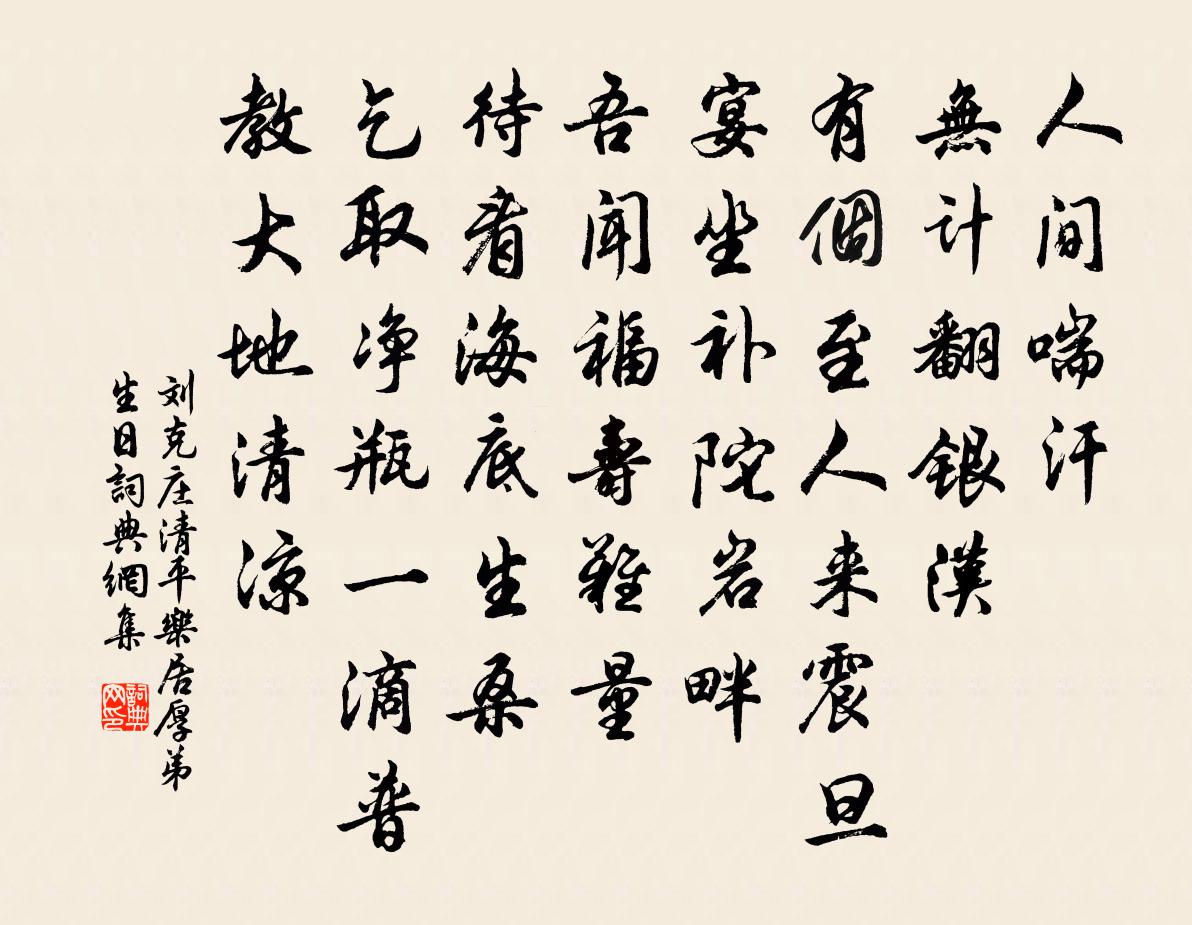 人间喘汗
無计翻银漢
有個至人来震旦
宴坐补陀岩畔
吾闻福壽難量
待看海底生桑
乞取净瓶一滴普
教大地清凉
刘克庄清平樂居厚弟
生日詞典網集
詞典网印